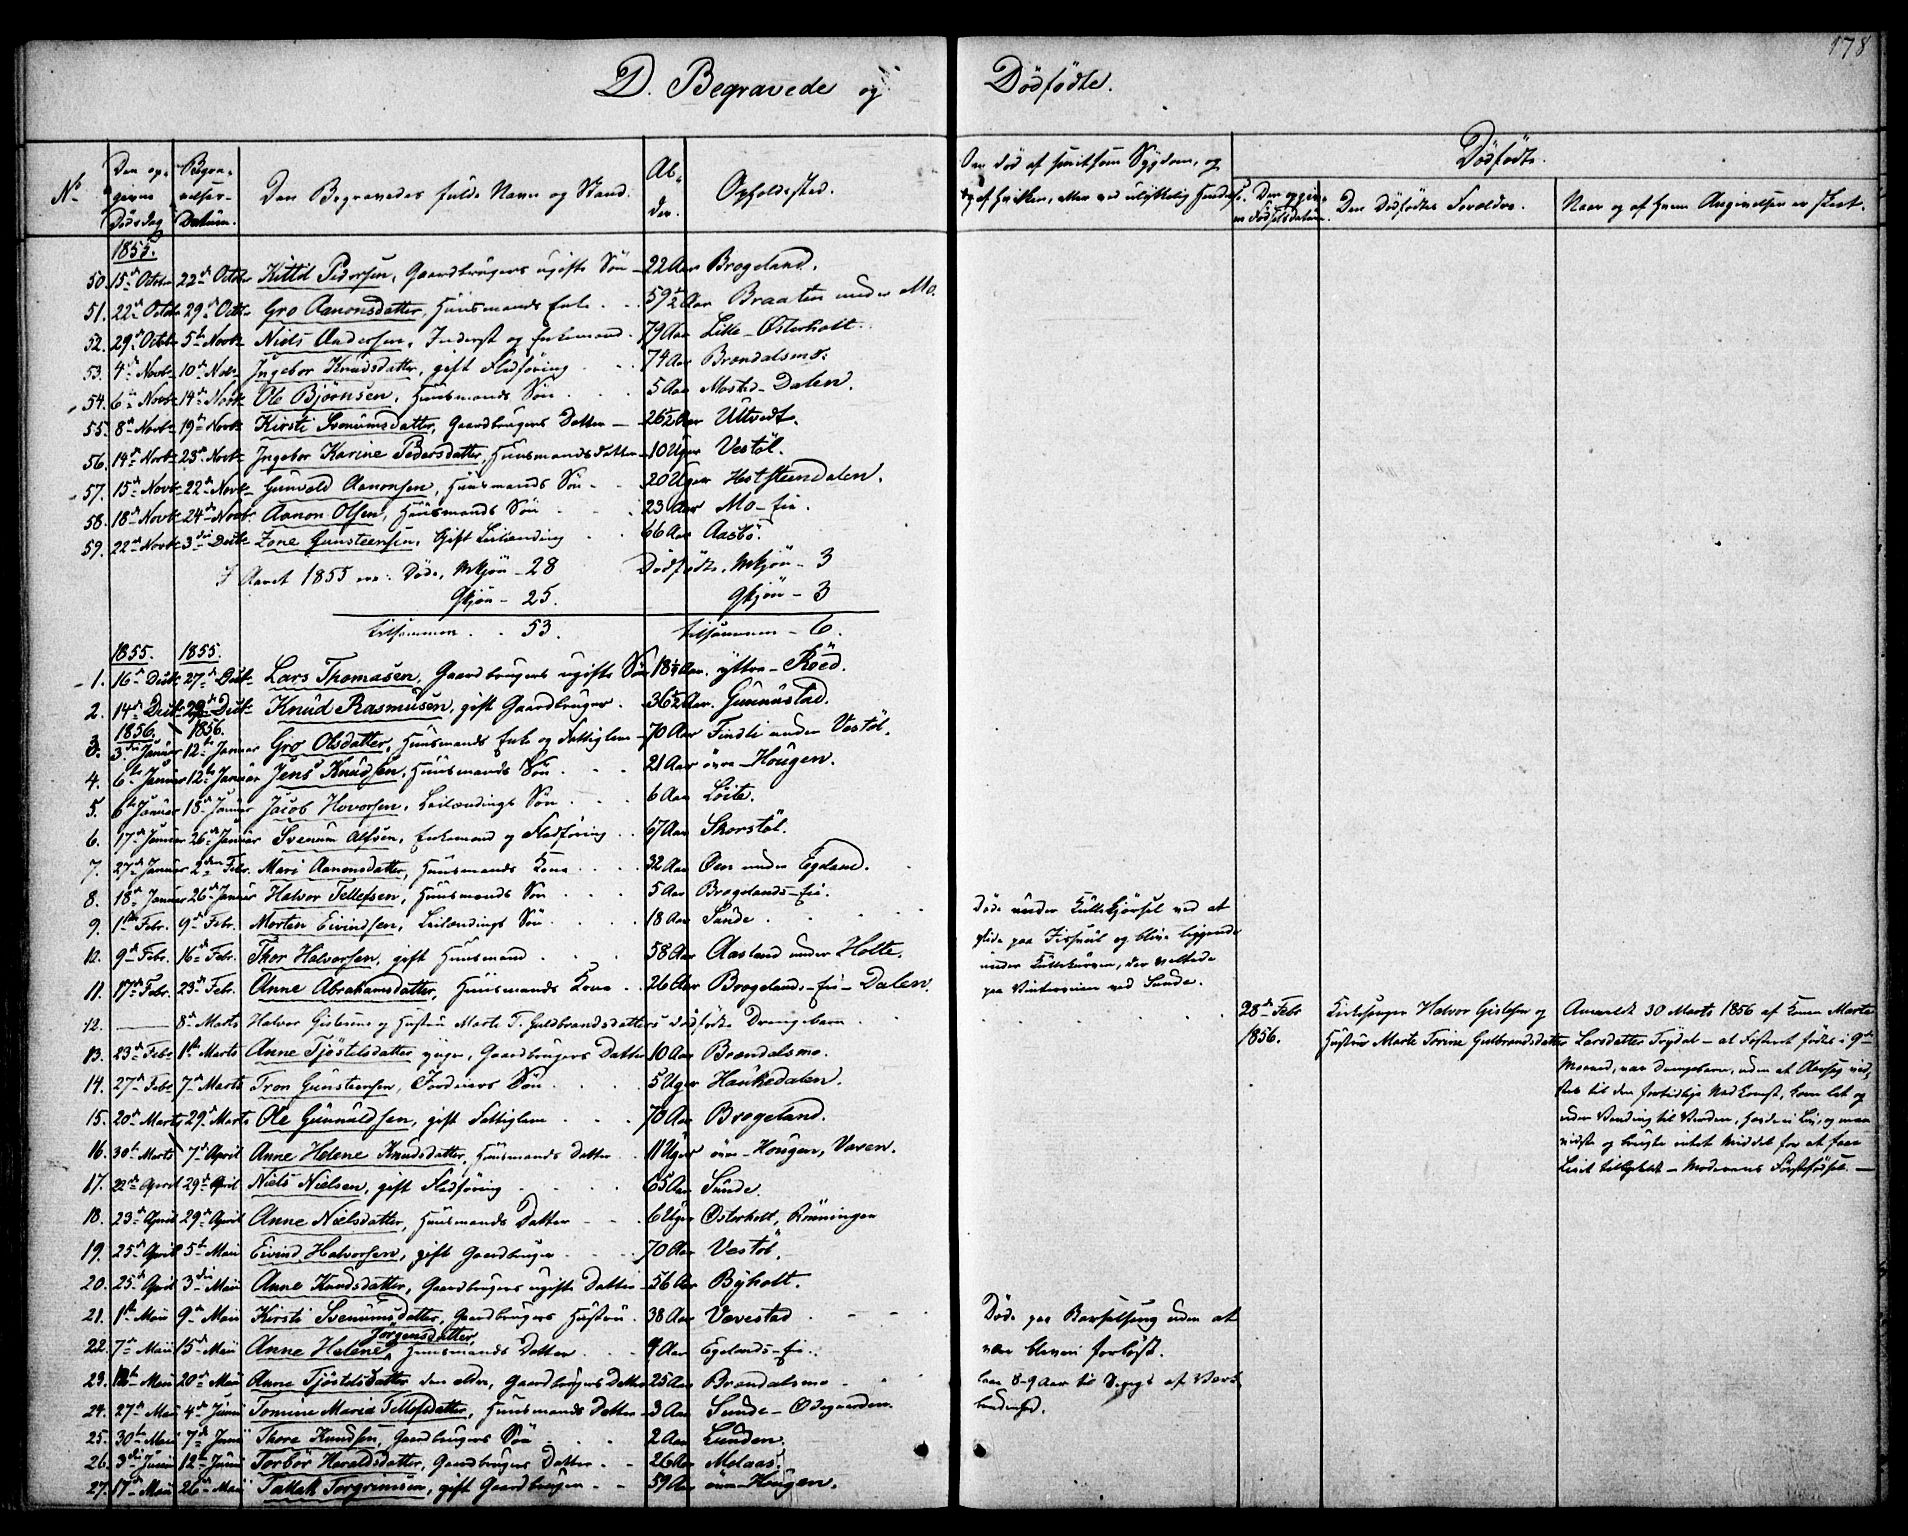 178
D. Begravede og Dødfødte.
No. Den opgivne Dødsdag Begravelses-Datum. Den Begravedes fulde Navn og Stand. Alder. Opholdssted. Dødfødte.
Den Dødfødtes Forældre. Naar og af Hvem Angivelsen er skeet.
1855.
50. 15de Octbr 22de Octbr Kittil Pedersen, Gaardbrugers ugifte Søn 22 Aar Brogeland.
51. 22de Octbr 29de Octbr Gro Aanonsdatter, Huusmands Enke 59½ Aar Braaten under Mo.
52. 29de Octbr 5te Novbr Niels Andersen, Inderst og Enkemand 79 Aar Lille-Østerholt.
53. 4de Novbr 10de Novbr Ingebor Knudsdatter, gift Fledføring 74 Aar Brændalsmo.
54. 6te Novbr 14de Novbr Ole Bjørnsen, Huusmands Søn 5 Aar Mostad-Dalen.
55. 8de Novbr 19de Novbr Kirsti Svenumsdatter, Gaardbrugers Datter 26½ Aar Ultvedt.
56. 14de Novbr 23de Novbr Ingebor Karine Pedersdatter, Huusmands Datter 10 Uger Vestøl.
57. 15de Novbr 22de Novbr Gunvold Aanonsen, Huusmands Søn 20 Uger Heststeendalen.
58. 18de Novbr 24de Novbr Aanon Olsen, Huusmands Søn 23 Aar Mo-Eie.
59. 22de Novbr 3die Decbr Zone Gunsteensen, Gift Leilending 66 Aar Aasbø.
I Aaret 1855 ere: Døde, Mkjøn - 28 Dødfødte, Mkjøn - 3
Qkjøn - 25. Qkjøn - 3
tilsammen 53. tilsammen - 6.
1855. 1855.
1. 16de Decbr 27de Decbr Lars Thomasen, Gaardbrugers ugifte Søn Aar. yttre-Røed.
2. 14de Decbr Decbr Knud Rasmusen, gift Gaardbruger 36½ Aar. Gunnustad.
1856. 1856.
3. 3die Januar 12te Januar Gro Olsdatter, Huusmands Enke og Fattiglem 70 Aar Findli under Vestøl.
4. 6te Januar 12te Januar Jens Knudsen, Huusmands Søn 21 Aar øvre-Hougen.
5. 6te Januar 15de Januar Jacob Hovorsen, Leilændings Søn 6 Aar Løite.
6. 17de Januar 26de Januar Svenum Alfsen, Enkemand og Fledføring 67 Aar Skorstøl.
7. 27de Januar 2den Febr. Mari Aanonsdatter, Huusmands Kone 32 Aar Øen under Egeland.
8. 18de Januar 26de Januar Halvor Tellefsen, Huusmands Søn 5 Aar Brogelands-Eie.
9. 1ste Febr. 9de Febr. Morten Eivindsen, Leilændings Søn 18 Aar Sunde. Døde under Kullekjørsel ved at
glide paa Iishuul og blive liggende
10. 9de Febr. 16de Febr. Thor Halvorsen, gift Huusmand 58 Aar Aasland under Holte.
under Kullekurven, der veltede
11. 17de Febr. 23de Febr. Anne Abrahamsdatter, Huusmands Kone 26 Aar Brogelands-Eie-Dalen.
paa Vinterveien ved Sunde.
12. 8de Marts Halvor Gislesens og Hustru Marte T. Guldbrandsdatters dødfødte Drengebarn 28de Febr 1856. Kirkesanger Halvor Gislesen og Hustru Marte Torine Gulbrandsdatter Anmeldt 30 Marts 1856 af Konen Marte
Larsdatter Frydal - at Fosteret fødtes i 9de
Maaned, var Drengebarn, uden at Aarsag vid-
stes til den fortidlige Nedkomst, kom let og
uden Vending til Verden, havde ei Liv, og man
vidste og brugte intet Middel for at faae
Livet tilbagekaldt - Moderens Førstefødsel. -
13. 23de Febr 1ste Marts Anne Tjøstelsdatter yngre, Gaardbrugers Datter 10 Aar Brændalsmo.
14. 27de Febr 7de Marts Tron Gunsteensen, Søn 5 Uger Haukedalen.
15. 20de Marts 29de Marts Ole Gunnuldsen, gift Fattiglem 70 Aar Brogeland.
16. 30te Marts 7de April Anne Helene Knudsdatter, Huusmands Datter 11 Uger øvre-Hougen, Vasen.
17. 22de April 29de April Niels Nielsen, gift Fledføring 65 Aar Sunde.
18. 23de April 29de April Anne Nielsdatter, Huusmands Datter 6 Uger Østerholt, Rønningen
19. 25de April 5te Maii Eivind Halvorsen, gift Gaardbruger 70 Aar Vestøl.
20. 25de April 3die Maii Anne Knudsdatter, Gaardbrugers ugifte Datter 56 Aar Byholt.
21. 1ste Maii 9de Maii Kirsti Svenumsdatter, Gaardbrugers Hustru 38 Aar Vævestad Døde paa Barselseng uden at
være bleven forløst.
22. 7de Maii 15de Maii Anne Helene Jørgensdatter, Huusmands Datter 9 Aar Egelands-Eie.
23. Maii 20de Maii Anne Tjøstelsdatter den eldre, Gaardbrugers Datter 25 Aar Brændalsmo
24. 27de Maii 4de Junii Tomine Maria Tellefsdatter, Huusmands Datter 3 Aar Sunde-Ødegaarden.
25. 30te Maii 7de Junii Thore Knudsen, Gaardbrugers Søn 2 Aar Lunden.
26. 3die Junii 12te Junii Torbør Heraldsdatter, Gaardbrugers Datter 26 Aar Molaas.
27. 17de Maii 26de Maii Tallak Torgrimsen, gift Gaardbruger 59 Aar øvre-Hougen.